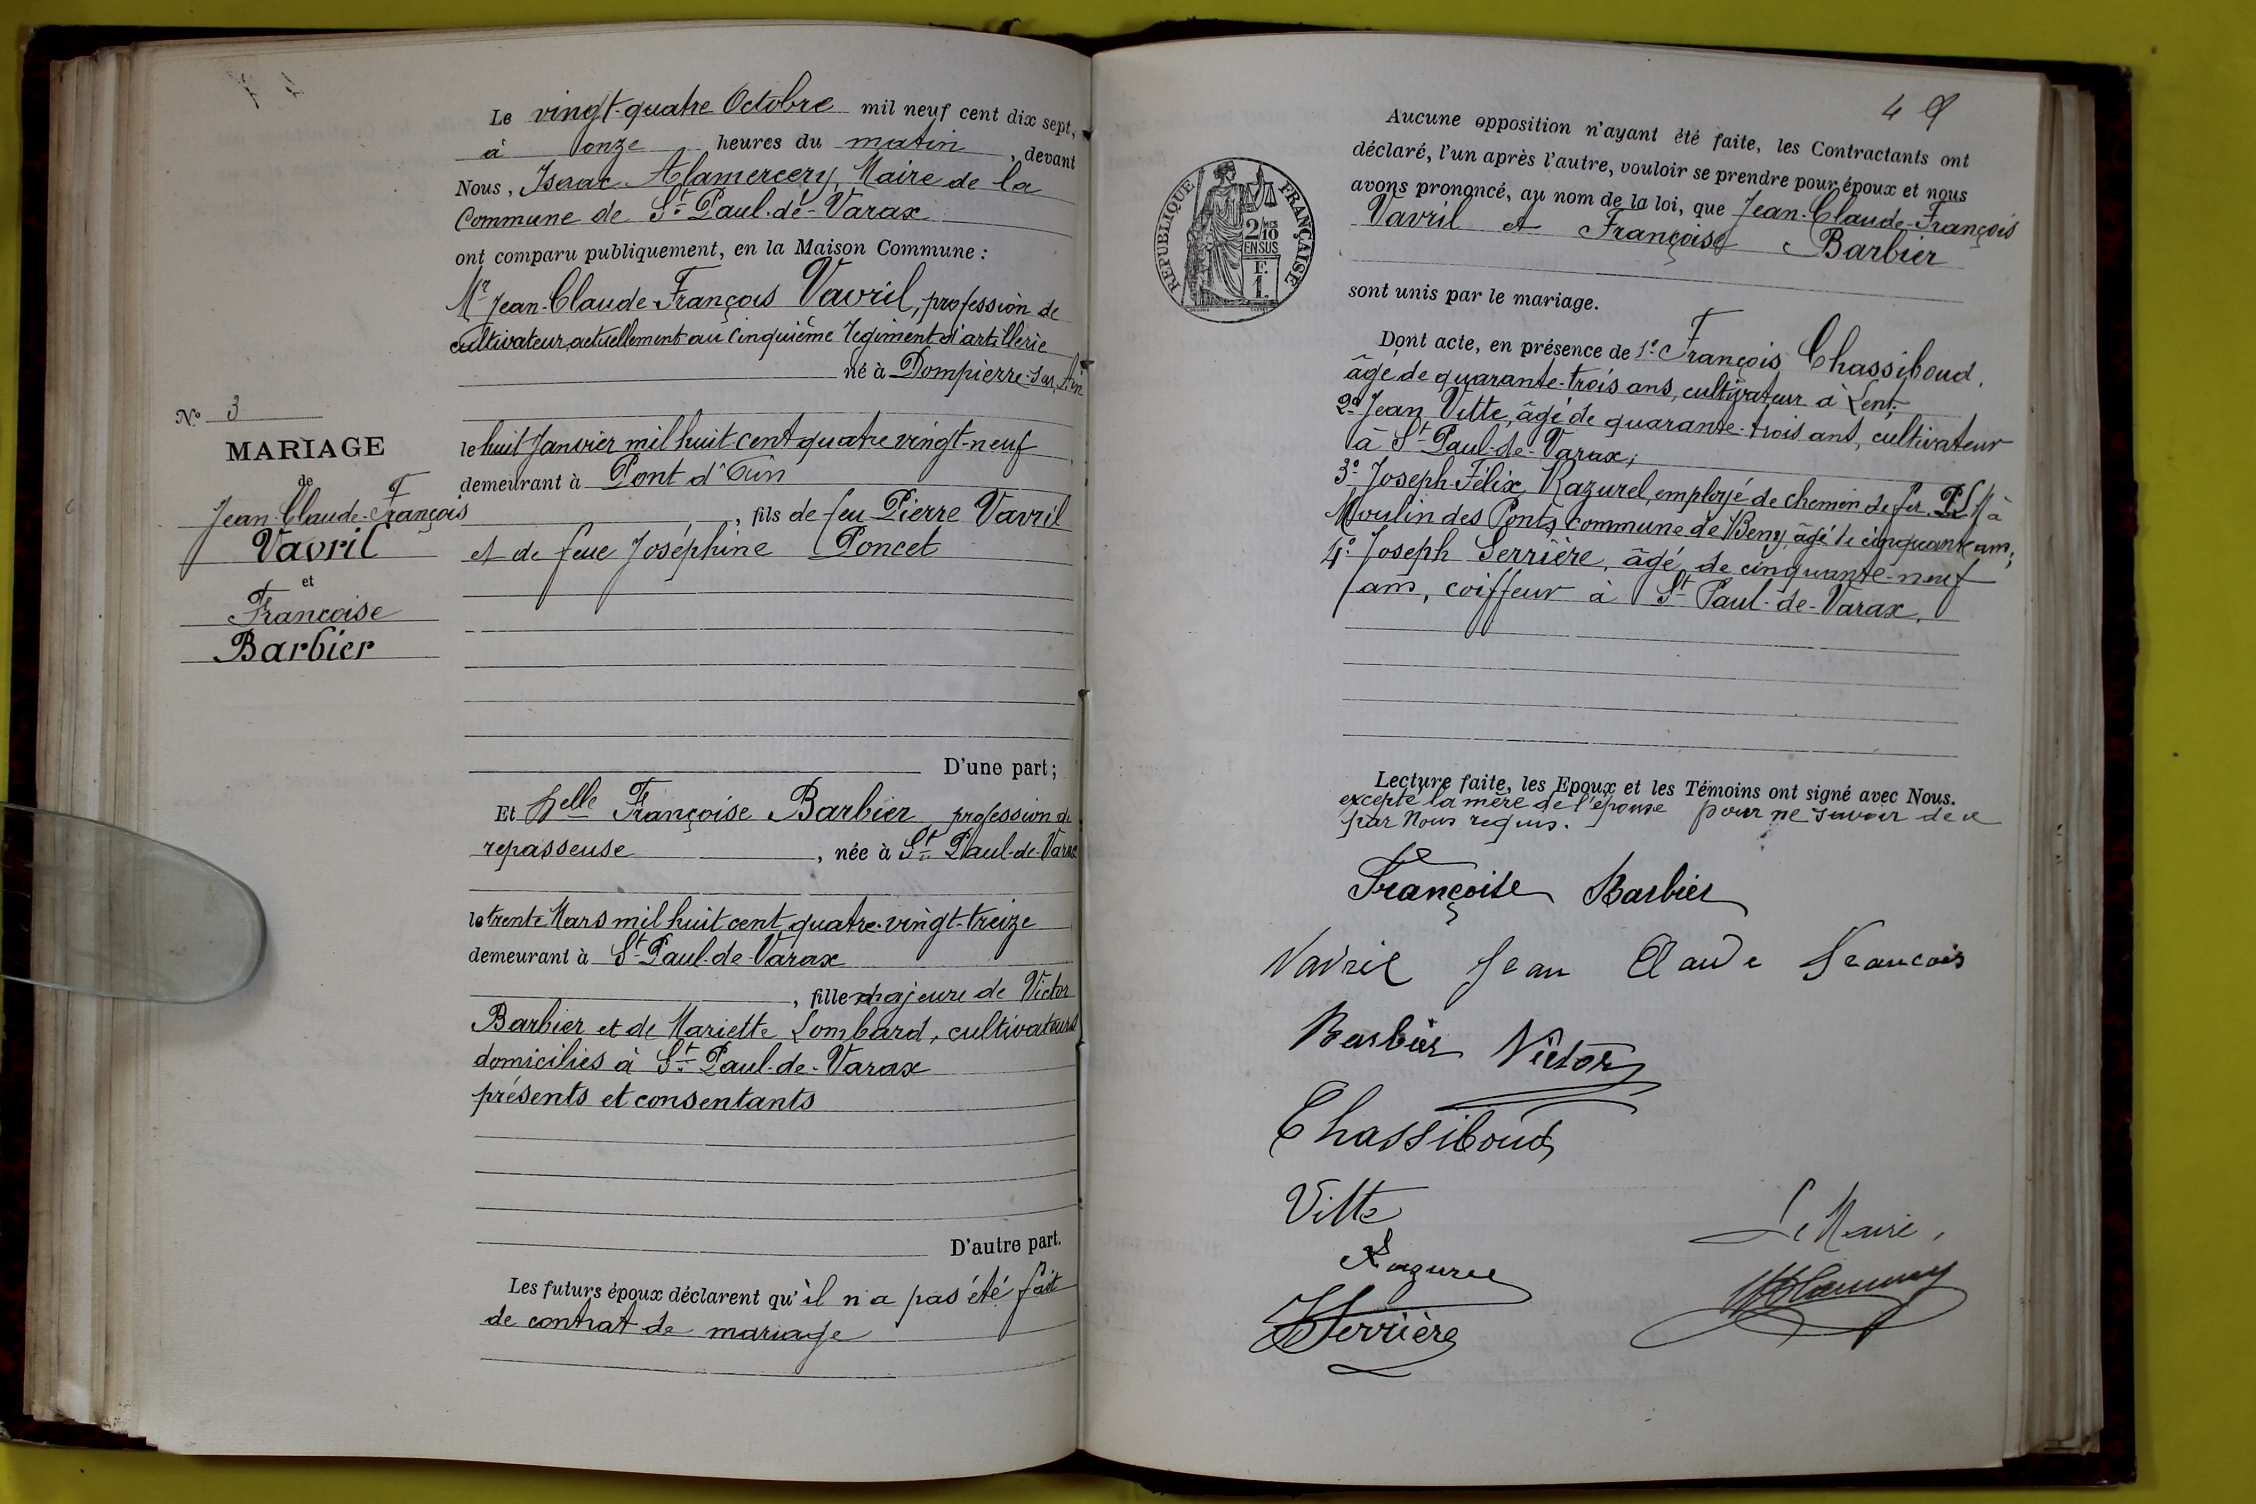 Le vingt-quatre Octobre mil neuf cent dix sept,
à onze heures du matin, devant
Nous, Isaac Alamercery, Maire de la
Commune de St Paul-de-Varax
ont comparu publiquement, en la Maison Commune :
Mr Jean-Claude-François Vavril, profession de
cultivateur, actuellement au cinquième régiment d'artillerie
né à Dompierre-sur-Ain
le huit Janvier mil huit cent quatre vingt-neuf
demeurant à Pont d'Ain
, fils de feu Pierre Vavril
et de feue Joséphine Poncet
D'une part ;
Et Delle Françoise Barbier, profession de
repasseuse, née à St Paul-de-Varax
le trente Mars mil huit cent quatre-vingt-treize
demeurant à St Paul-de-Varax
, fille majeure de Victor
Barbier et de Mariette Lombard, cultivateurs
domiciliés à St Paul-de-Varax
présents et consentants
D'autre part.
Les futurs époux déclarent qu'il n'a pas été fait
de contrat de mariage
No 3
MARIAGE
de
Jean-Claude-François
Vavril
et
Françoise
Barbier
49
RÉPUBLIQUE FRANÇAISE
2/10
EN SUS
F.
1.
Aucune opposition n'ayant été faite, les Contractants ont
déclaré, l'un après l'autre, vouloir se prendre pour époux et nous
avons prononcé, au nom de la loi, que Jean-Claude-François
Vavril et Françoise Barbier
sont unis par le mariage.
Dont acte, en présence de 1o François Chassiboud,
âgé de quarante-trois ans, cultivateur à Lent;
2o Jean Vitte, âgé de quarante-trois ans, cultivateur
à St Paul-de-Varax;
3o Joseph-Félix Razurel, employé de chemin de fer P.L.M à
Moulin des Ponts, commune de Beny, âgé de cinquante ans;
4o Joseph Serrière, âgé de cinquante-neuf
ans, coiffeur à St Paul-de-Varax.
Lecture faite, les Epoux et les Témoins ont signé avec Nous.
excepté la mère de l'épouse pour ne savoir de ce
par Nous requis.
Françoise Barbier
Vavril Jean Claude Francois
Barbier Victor
Chassiboud
Vitte
Razurel
Serrière
Le Maire,
Alamercery